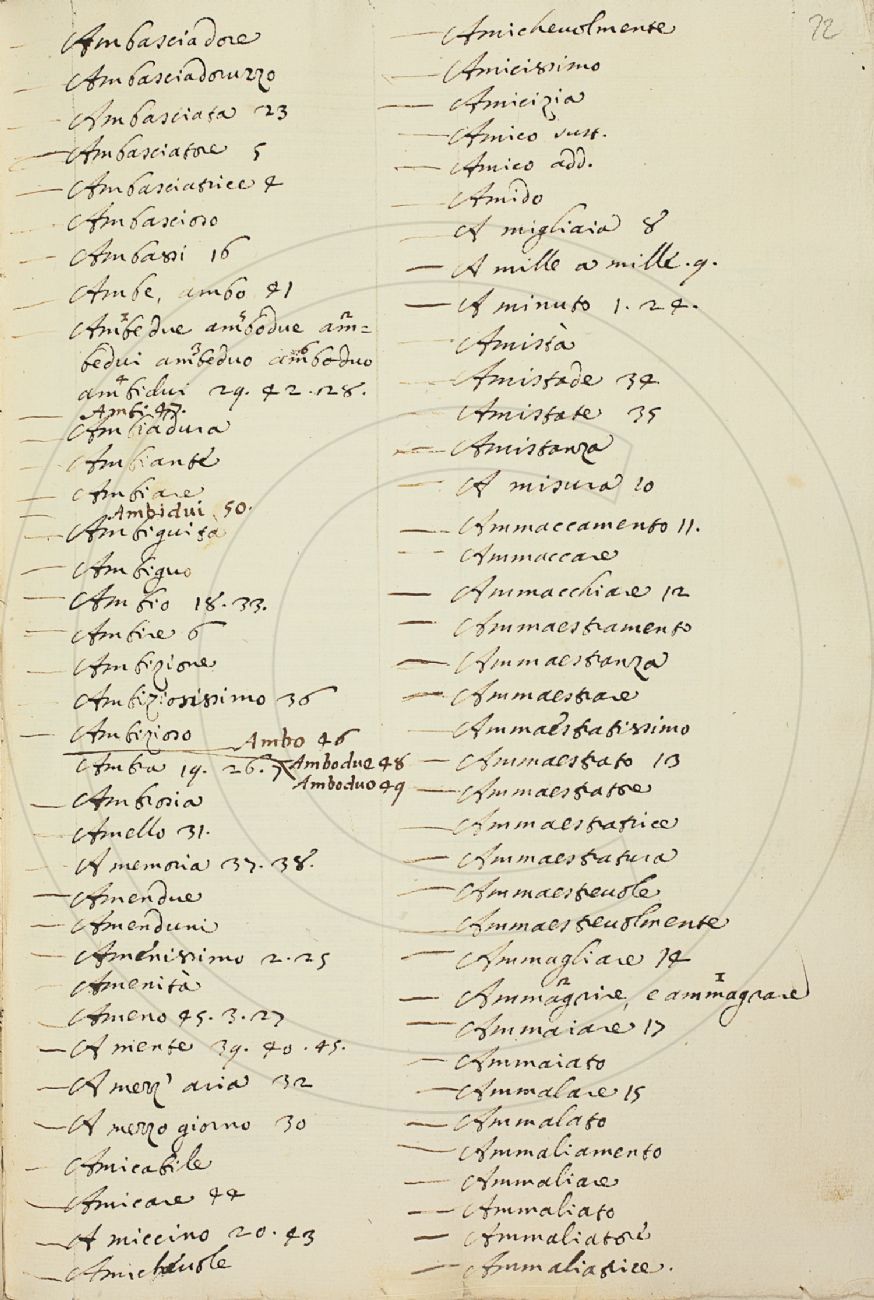 72
Ambasciadore
Ambasciadoruzzo
Ambasciata 23
Ambasciatore 5
Ambasciatrice 4
Ambascioso
Ambassi 16
Ambe, ambo 41
Ambedue ambodue am=
bedui ambeduo amboduo
ambidui 29. 42. 28.
Ambi 47.
Ambiadura
Ambiante
Ambiare
Ambidui 50.
Ambiguità
Ambiguo
Ambio 18. 33.
Ambire 6
Ambizione
Ambiziosissimo 36
Ambizioso
Ambo 46
Ambra 19. 26. 7
Ambodue 48
Amboduo 49
Ambrosia
Amello 31.
A memoria 37. 38.
Amendue
Amenduni
Amenissimo 2. 25
Amenità
Ameno 45. 3. 27
A mente 39. 40. 45.
A mezz' aria 32
A mezzo giorno 30
Amicabile
Amicare 44
A miccino 20. 43
Amicheuole
Amicheuolmente
Amicissimo
Amicizia
Amico sust.
Amico add.
Amido
A migliaia 8
A mille a mille. 9.
A minuto 1. 24.
Amistà
Amistade 34
Amistate 35
Amistanza
A misura 10
Ammaccamento 11.
Ammaccare
Ammacchiare 12
Ammaestramento
Ammaestranza
Ammaestrare
Ammaestratissimo
Ammaestrato 13
Ammaestratore
Ammaestratrice
Ammaestratura
Ammaestreuole
Ammaestreuolmente
Ammagliare 14
Ammagrire, e ammagrare
Ammaiare 17
Ammaiato
Ammalare 15
Ammalato
Ammaliamento
Ammaliare
Ammaliato
Ammaliatore
Ammaliatrice.